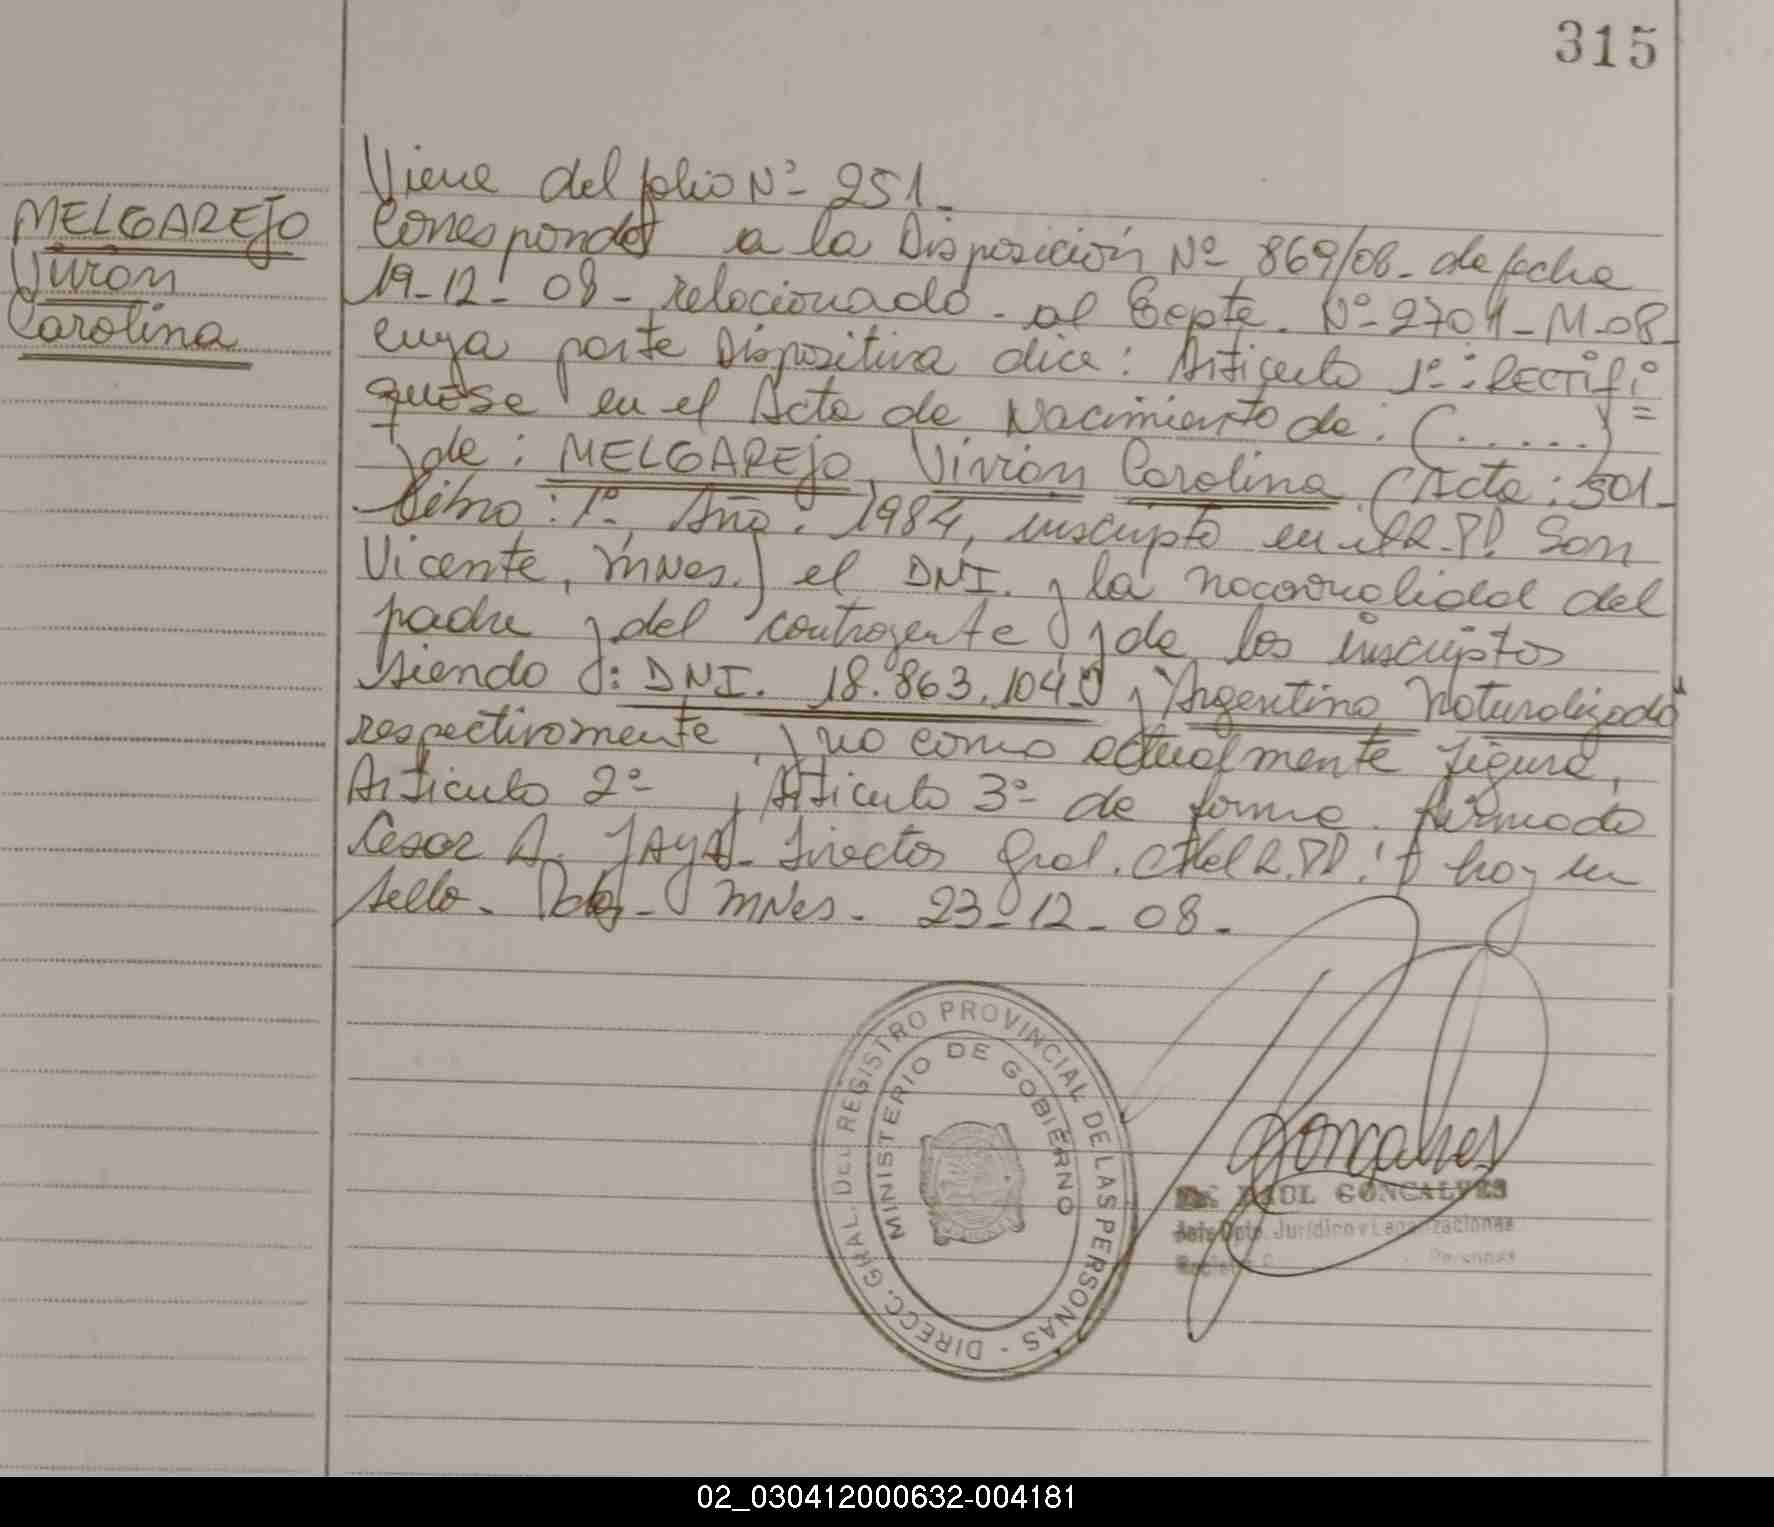 315
MELGAREJO
Vivian
Carolina
Viene del folio Nº 251.
Corresponde a la Disposición Nº 869/08 - de fecha
19-12-08 - relacionado - al Expte. Nº 2701-M-08-
cuya parte Dispositiva dice: Artículo 1º: RECTIFI=
quese en el Acta de Nacimiento de: (.....)
y de: MELGAREJO, Vivian Carolina (Acta: 501-
Libro: 1º, Año: 1984, inscripto en el R.PP. San
Vicente, MNes.) el DNI. y la nacionalidad del
padre y del contrayente y de los inscriptos
siendo: DNI. 18.863.104 y "Argentino Naturalizado"
respectivamente y no como actualmente figura,
Artículo 2º y Artículo 3º de forma. firmado
Cesar A. JAYA - Director Gral. del R.PP. hay un
sello. Pdas - MNes. 23-12-08.
DIRECC. GRAL. DEL REGISTRO PROVINCIAL DE LAS PERSONAS -
MINISTERIO DE GOBIERNO
Goncalves
Dr. RAUL GONCALVES
Jefe Dpto. Jurídico y Legalizaciones
Personas
02_030412000632-004181